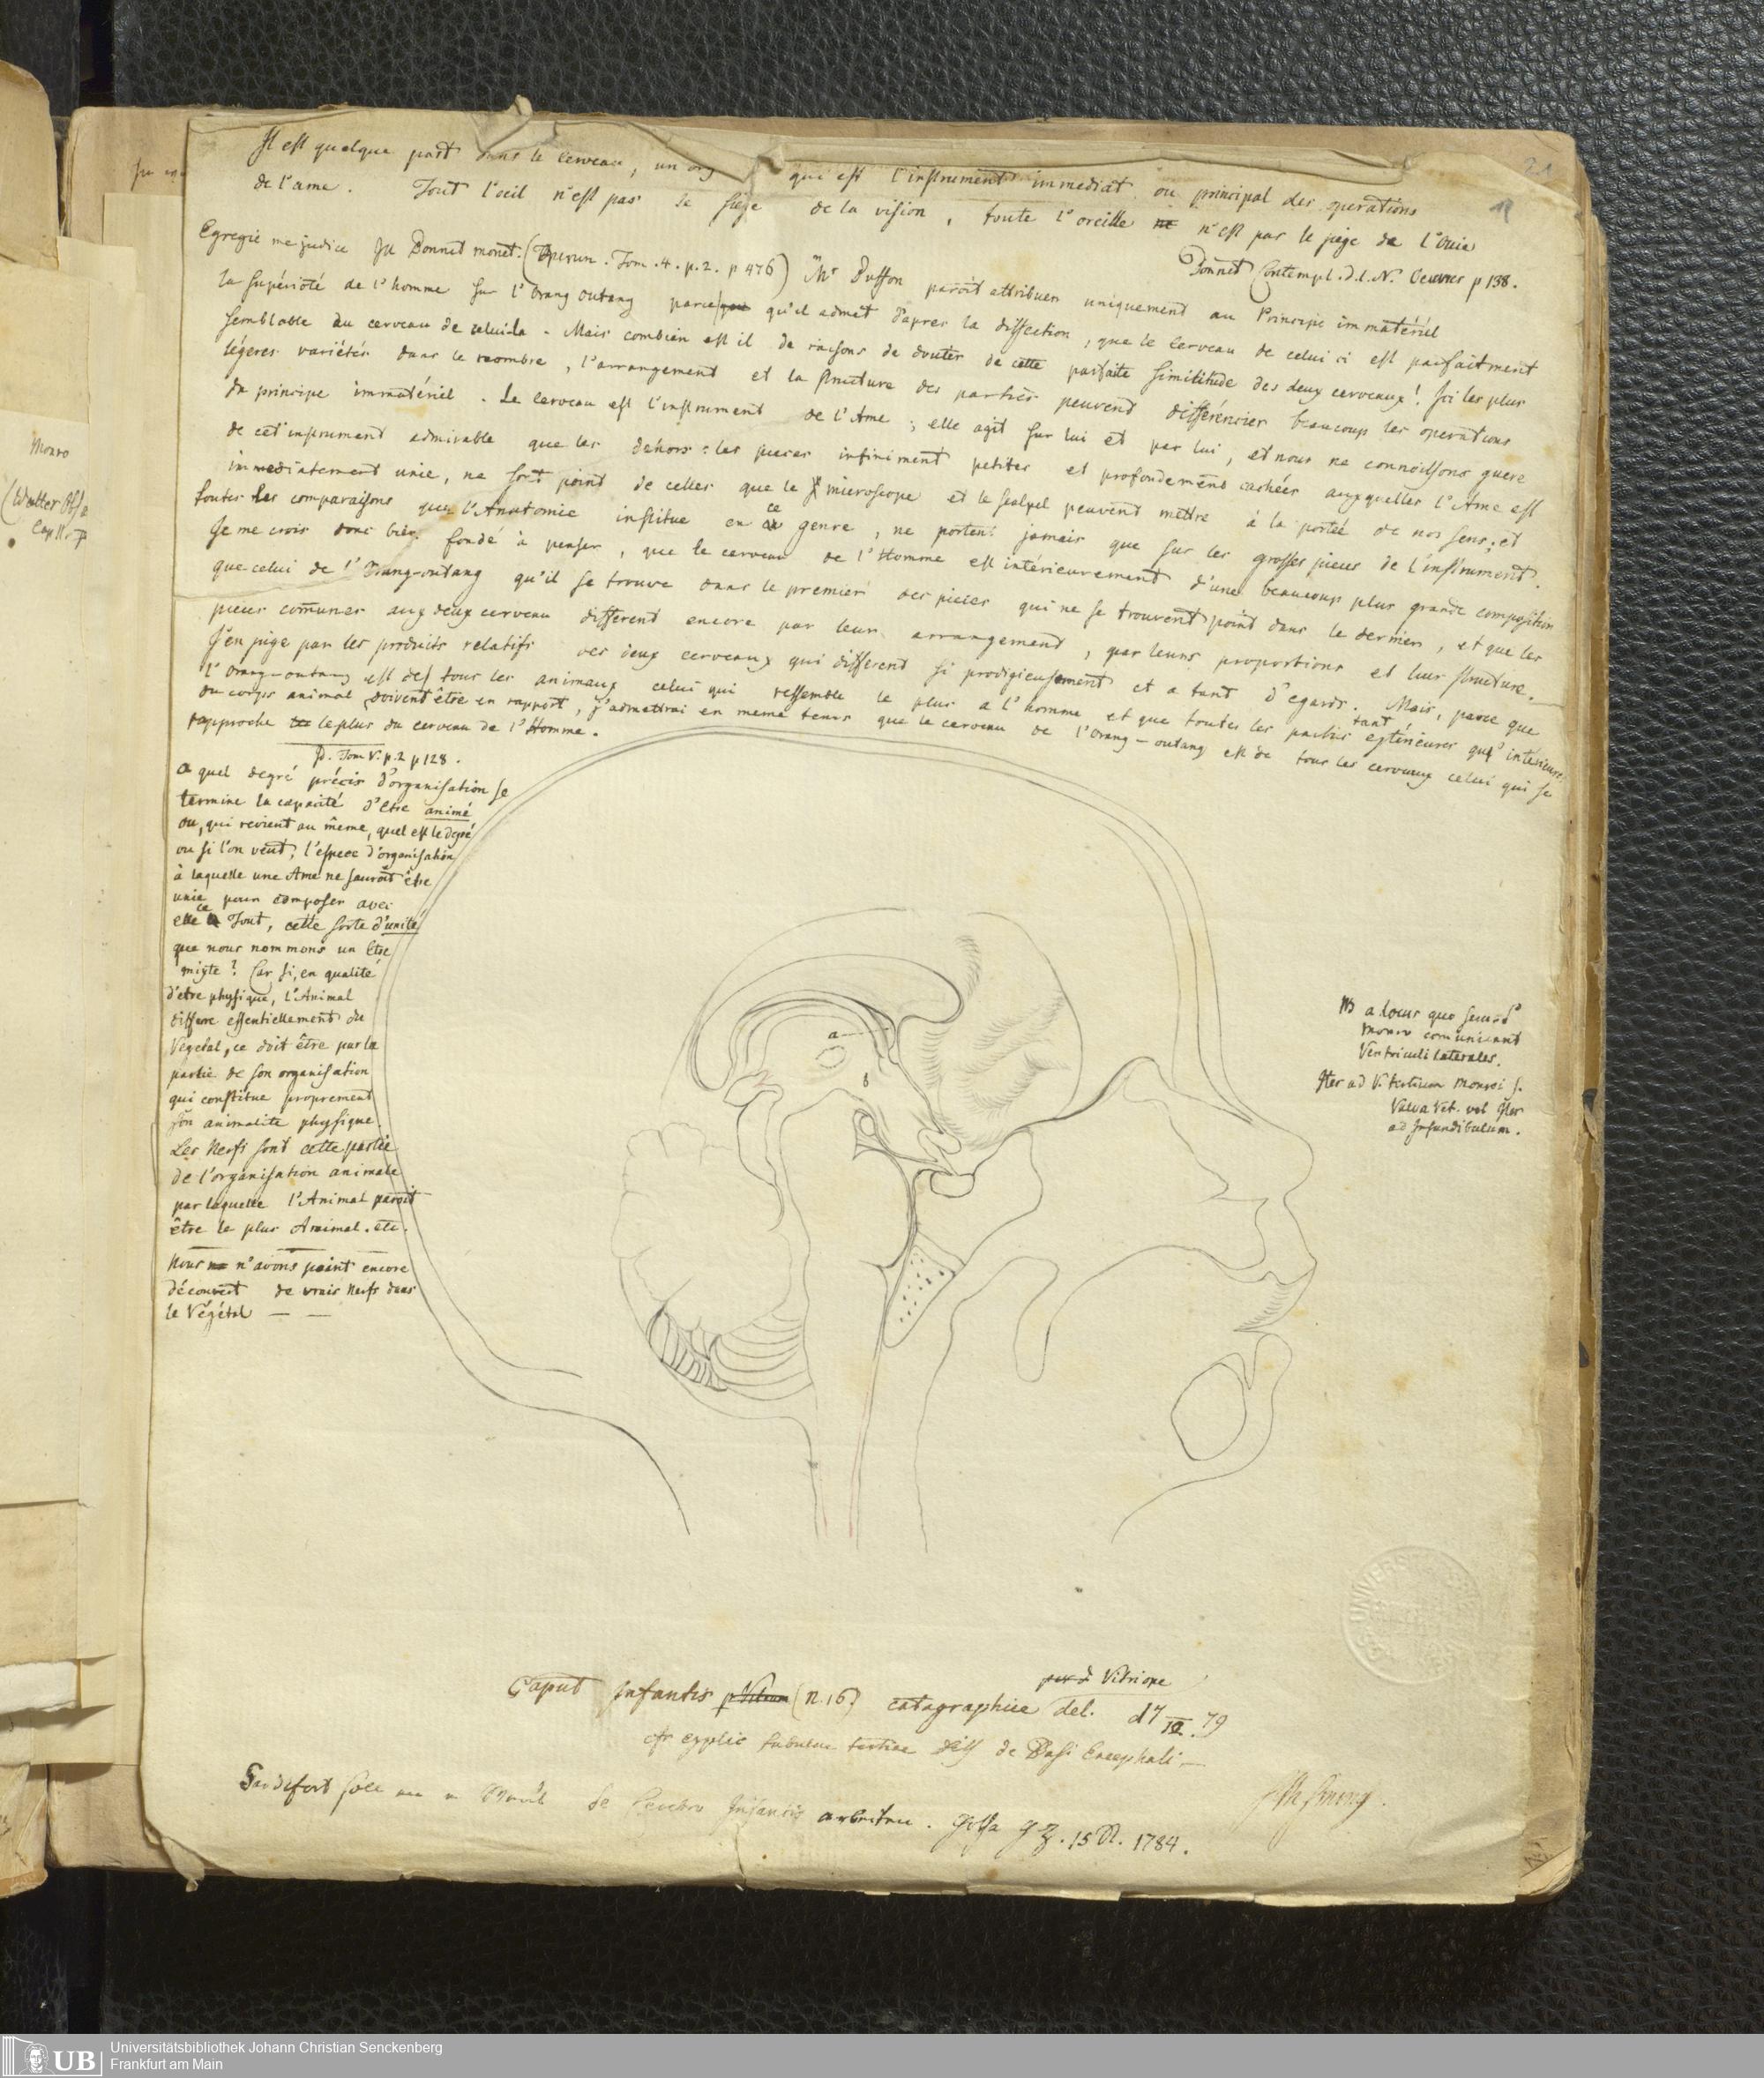 Il est quelque part dans le cerveau, un org qui est l'instrument immediat ou principal des operations
de l'ame. Tout l'oeil n'est pas le siege de la vision, toute l'oreille n'est pas le siege de l'Ouie
Bonnet Contempl. d. l. N. Oeuvres p 138.
Egregie me judice Ill Bonnet monet. (Tom. 4. p. 2. p 476) Mr Buffon paroit attribuer uniquement au Principe immatériél
la supérioté de l'homme sur l'Orang outang parce qu'il admet d'apres la dissection, que le cerveau de celui ci est parfaitment
semblable au cerveau de celui-la. Mais combien est il de raisons de douter de cette parfaite similitude des deux cerveaux! Ici les plus
légeres variétés dans le nombre, l'arrangement et la structure des parties peuvent différencier beaucoup les operations
du principe immatériel. Le cerveau est l'instrument de l'Ame; elle agit sur lui et par lui, et nous ne connoissons guere
de cet instrument admirable que les dehors: les pieces infiniment petites et profondement cachées auxquelles l'Ame est
immediatement unie, ne sont point de celles que le microscope et le scalpel peuvent mettre à la portée de nos sens; et
toutes les comparaisons que l'Anatomie institue en ce genre, ne portent jamais que sur les grosses pieces de l'instrument.
Je me crois donc bien fondé à penser, que le cerveau de l'Homme est intérieurement d'une beaucoup plus grande composition
que celui de l'Orang-outang qu'il se trouve dans le premier des pieces qui ne se trouvent point dans le dernier, et que les
pieces comunes aux deux cerveau different encore par leur arrangement, par leurs proportions et leur structure.
J'en juge par les produits relatifs des deux cerveaux qui different si prodigieusement et a tant d'egards. Mais, parce que
l'Orang-outang est de tous les animaux celui qui ressemble le plus a l'homme et que toutes les parties tant extérieures qu' intérieures
du corps animal doivent être en rapport, j'admettrai en meme tems que le cerveau de l'Orang-outang est de tous les cerveaux celui qui se
rapproche le plus du cerveau de l'Homme.
Id. Tom V. p. 2 p 128.
a quel degré précis d'organisation se
termine la capacité d'etre animé
ou, qui revient au même, quel est le degré
ou si l'on veut, l'espece d'organisation
à laquelle une Ame ne sauroit être
unie pour composer avec
elle ce Tout, cette sorte d'unité
que nous nommons un Etre
mixte? Car si, en qualité
d'etre physique, l'Animal
differe essentiellement du
Vegetal, ce doit être par la
partie de son organisation
qui constitue proprement
son animalite physique.
Les Nerfs sont cette partie
de l'organisation animale
par laquelle l'Animal paroit
être le plus Animal. etc.
Nous n'avons point encore
découvert de vrais Nerfs dans
le Végétal — —
a
b
NB a locus quo secund
Monro comunicant
Ventriculi laterales.
Iter ad V. tertium Monroi s.
Vulva Vet. vel Iter
ad Infundibulum.
Monro
(Walter Obs
Cap
21
Caput Infantis (n. 16) catagraphice del. d 7/12. 79
Vitrione
explic tabulae tertiae Diss de Basi Encephali —
Sandifort de Cerebro Infantis . 15 . 1784.
Universitätsbibliothek Johann Christian Senckenberg
Frankfurt am Main
UB